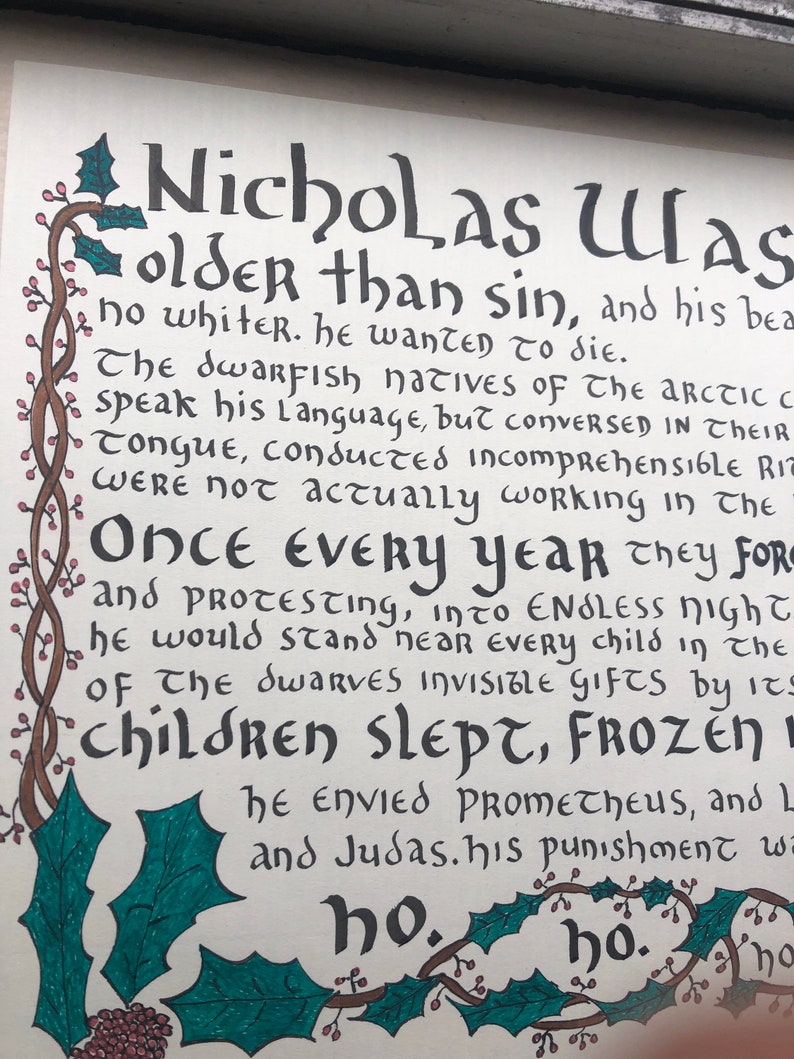 Nicholas Was
older than sin, and his bea
no whiter. he wanted to die.
The dwarfish natives of the arctic c
speak his language, but conversed in their
tongue, conducted incomprehensible rit
were not actually working in the
Once every year they forc
and protesting, into Endless night
he would stand near every child in the
of the dwarves invisible gifts by its
children slept, frozen
he envied Prometheus, and L
and Judas. his punishment wa
ho.
ho.
ho